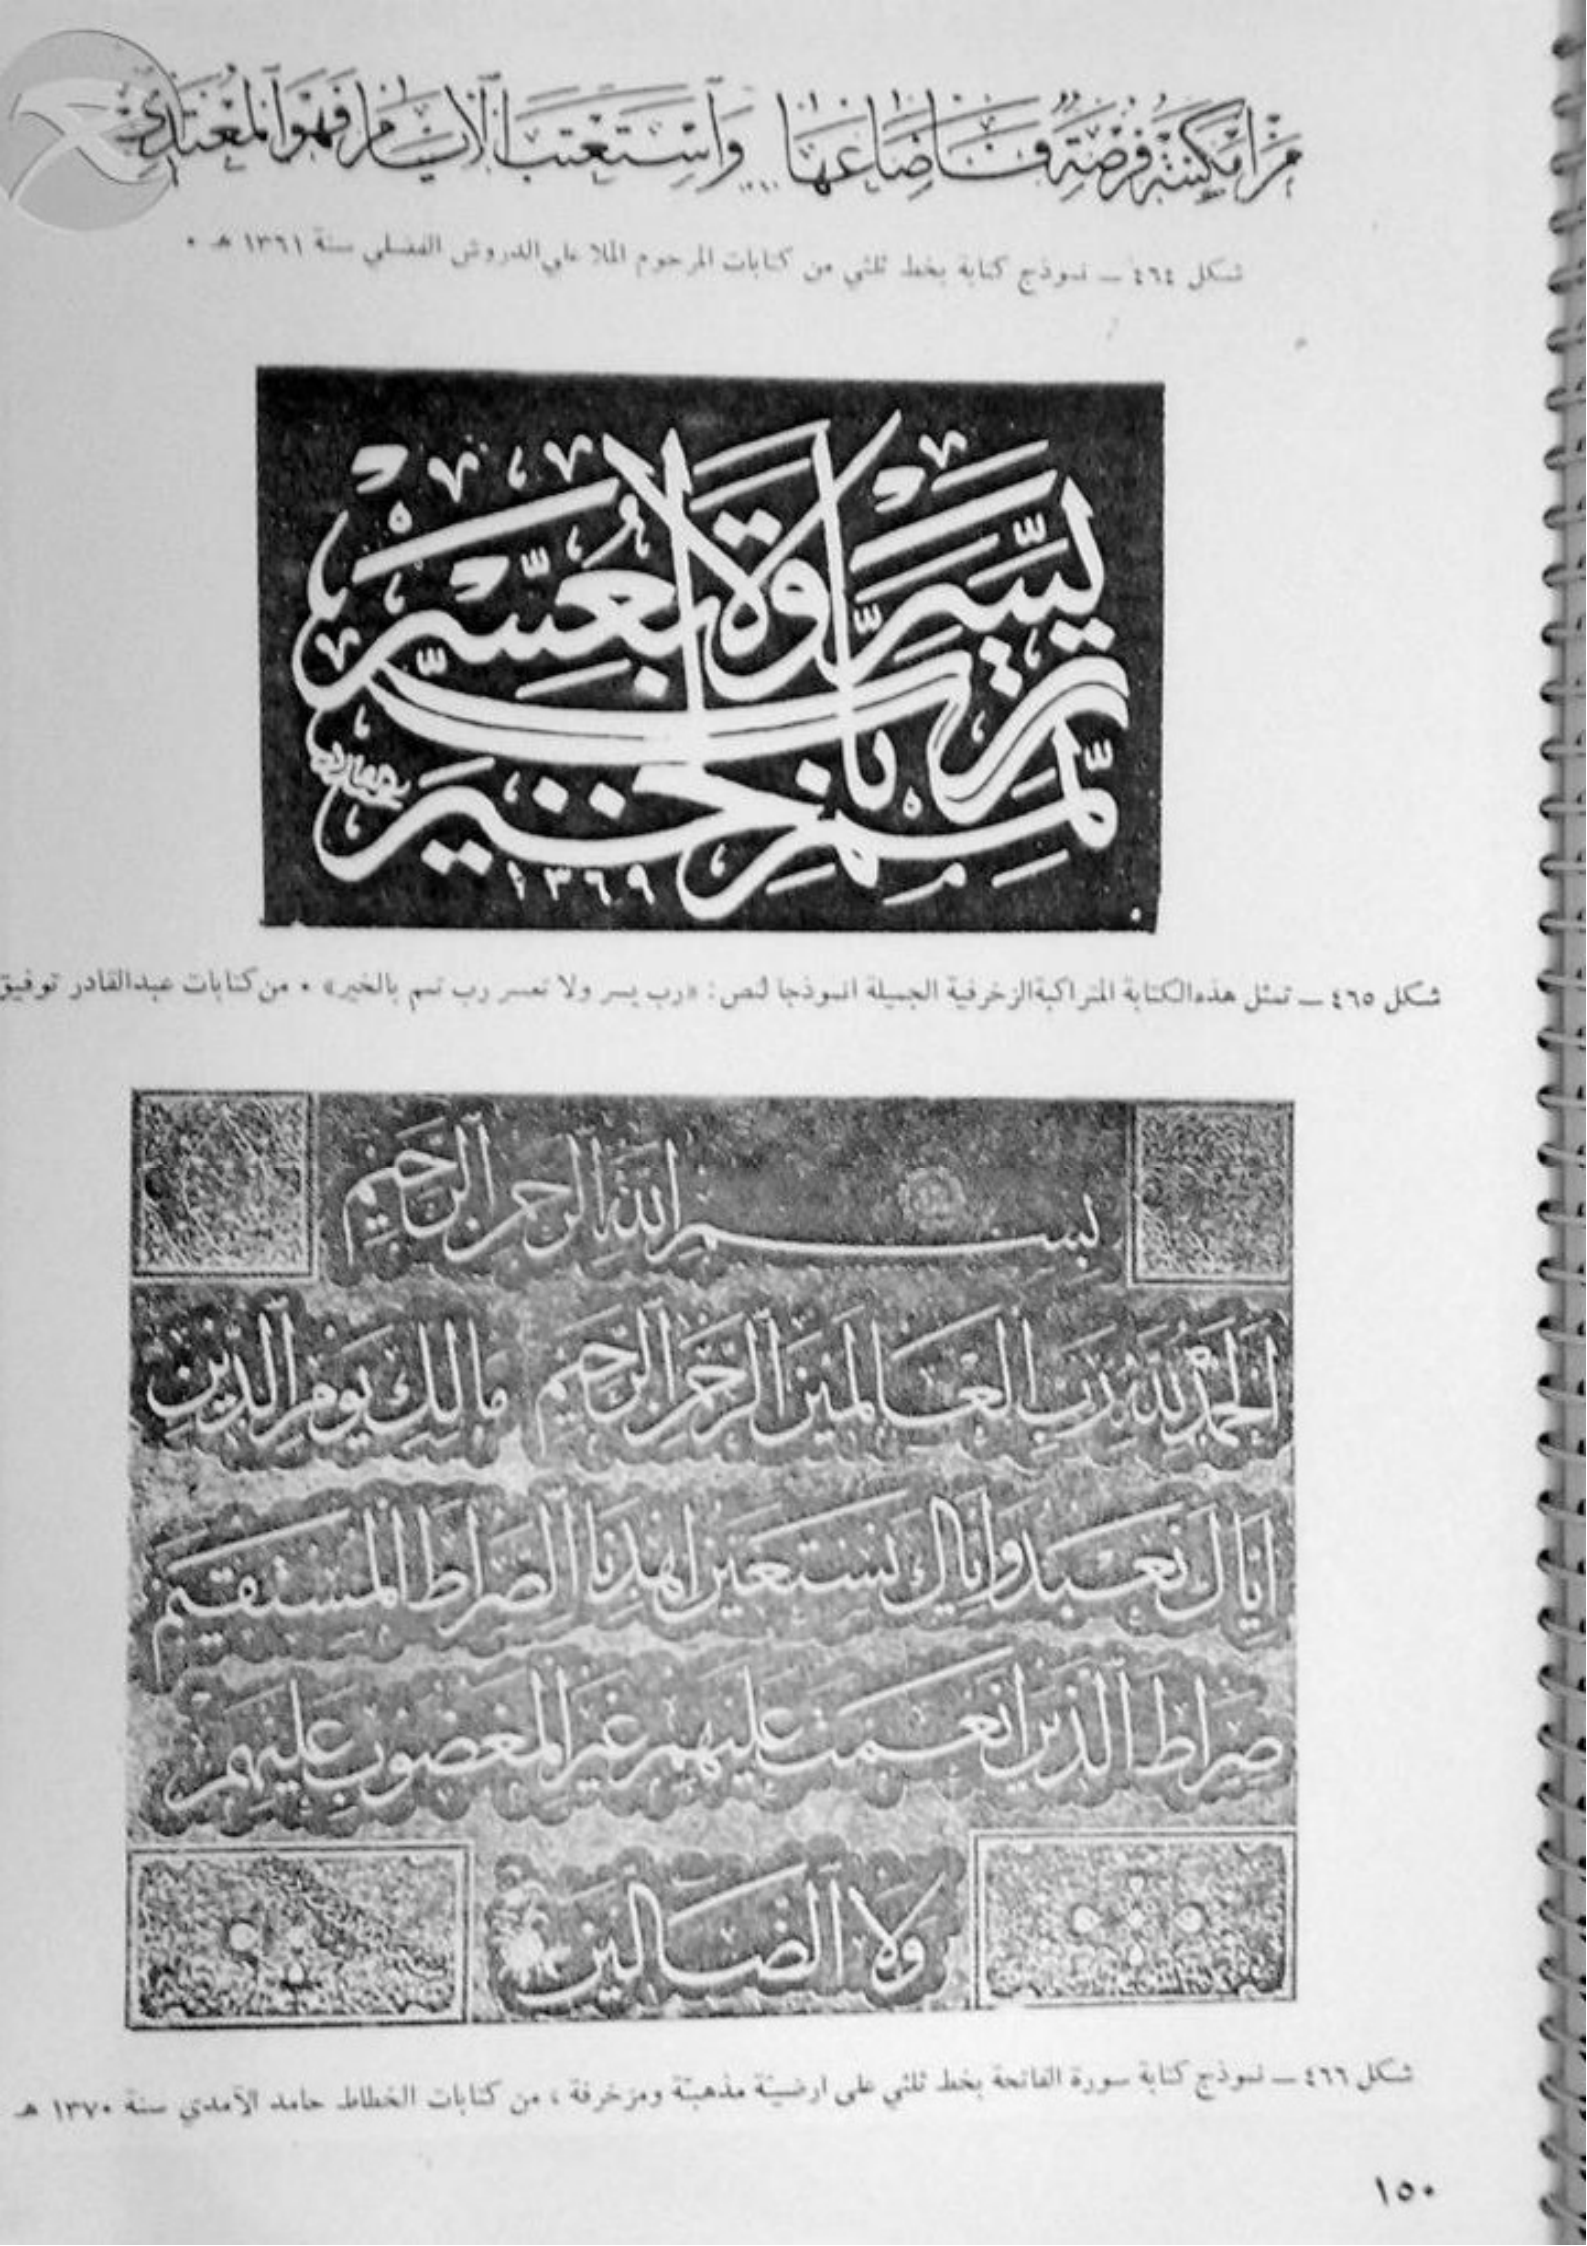 من امكنته فرصة فاضاعها واستعتب الايام فهو المعتدي
١٣٦١
شكل ٤٦٤ — نموذج كتابة بخط ثلثي من كتابات المرحوم الملا علي الدروش الفضلي سنة ١٣٦١ هـ ٠
رب يسر ولا تعسر
رب تمم بالخير
١٣٦٩
شكل ٤٦٥ — تمثل هذه الكتابة المتراكبة الزخرفية الجميلة انموذجا لنص: «رب يسر ولا تعسر رب تمم بالخير» ٠ من كتابات عبدالقادر توفيق
بسم الله الرحمن الرحيم
الحمد لله رب العالمين الرحمن الرحيم مالك يوم الدين
اياك نعبد واياك نستعين اهدنا الصراط المستقيم
صراط الذين انعمت عليهم غير المغضوب عليهم
ولا الضالين
شكل ٤٦٦ — نموذج كتابة سورة الفاتحة بخط ثلثي على ارضية مذهبة ومزخرفة ، من كتابات الخطاط حامد الآمدي سنة ١٣٧٠ هـ
١٥٠